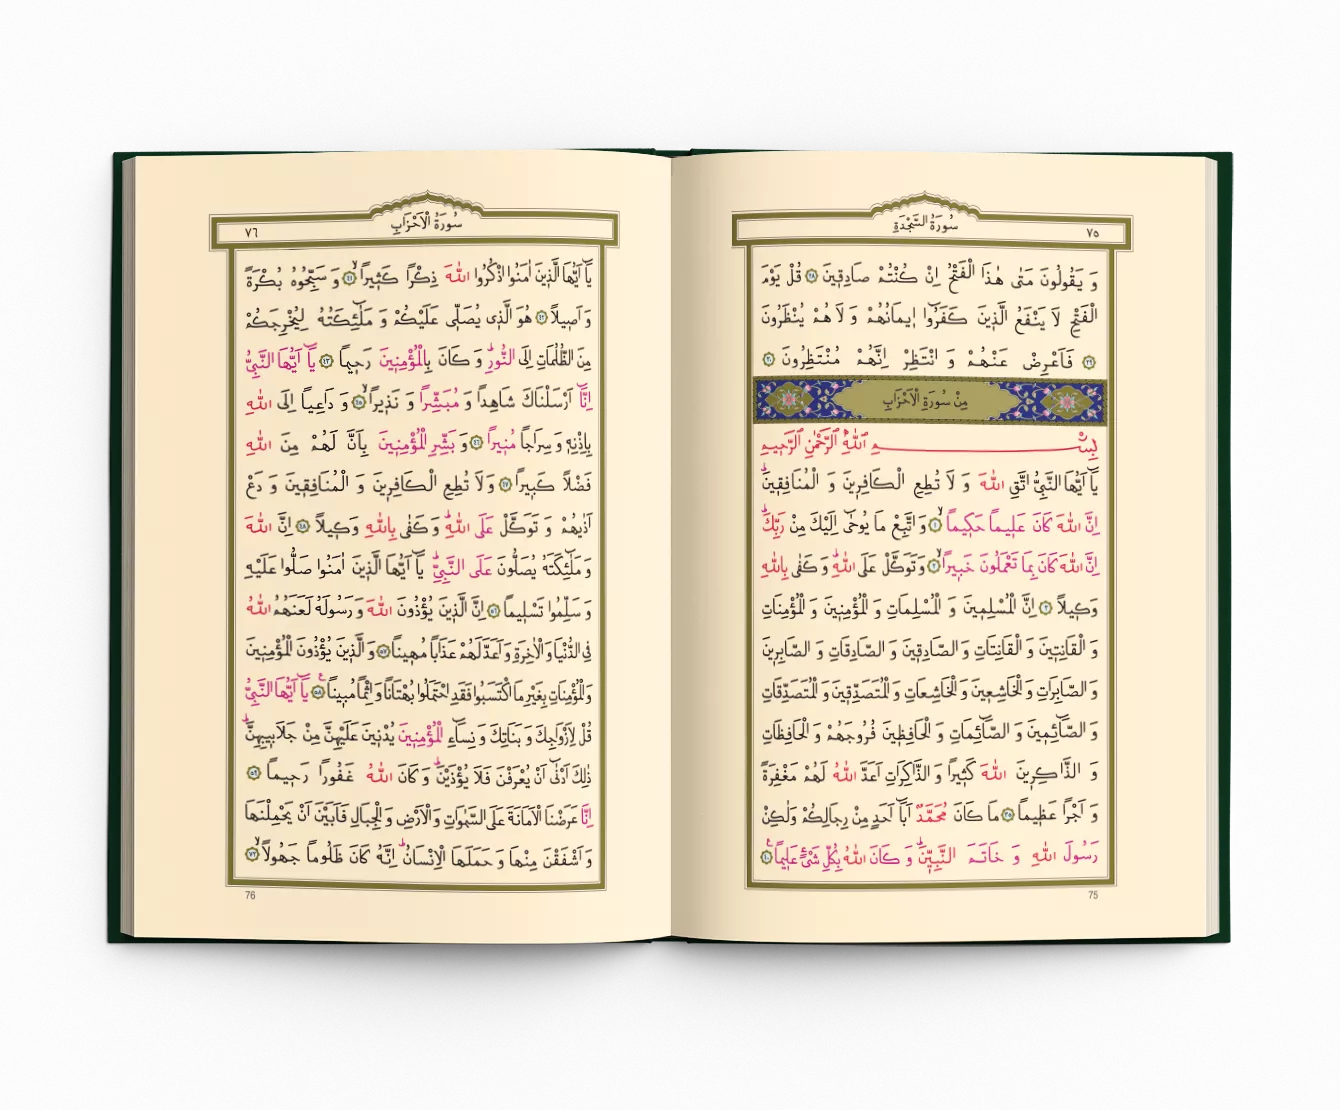 سُورَةُ السَّجْدَةِ
٧٥
وَ يَقُولُونَ مَتٰى هٰذَا الْفَتْحُ اِنْ كُنْتُمْ صَادِقِينَ ٢٨ قُلْ يَوْمَ
الْفَتْحِ لَا يَنْفَعُ الَّذِينَ كَفَرُٓوا اِيمَانُهُمْ وَ لَا هُمْ يُنْظَرُونَ
٢٩ فَاَعْرِضْ عَنْهُمْ وَ انْتَظِرْ اِنَّهُمْ مُنْتَظِرُونَ ٣٠
مِنْ سُورَةِ الْاَحْزَابِ
بِسْمِ اللّٰهِ الرَّحْمٰنِ الرَّحِيمِ
يَٓا اَيُّهَا النَّبِيُّ اتَّقِ اللّٰهَ وَ لَا تُطِعِ الْكَافِرِينَ وَ الْمُنَافِقِينَۜ
اِنَّ اللّٰهَ كَانَ عَلِيماً حَكِيماًۙ ١ وَ اتَّبِعْ مَا يُوحٰٓى اِلَيْكَ مِنْ رَبِّكَۜ
اِنَّ اللّٰهَ كَانَ بِمَا تَعْمَلُونَ خَبِيراًۙ ٢ وَ تَوَكَّلْ عَلَى اللّٰهِۜ وَ كَفٰى بِاللّٰهِ
وَكِيلاً ٣ اِنَّ الْمُسْلِمِينَ وَ الْمُسْلِمَاتِ وَ الْمُؤْمِنِينَ وَ الْمُؤْمِنَاتِ
وَ الْقَانِتِينَ وَ الْقَانِتَاتِ وَ الصَّادِقِينَ وَ الصَّادِقَاتِ وَ الصَّابِرِينَ
وَ الصَّابِرَاتِ وَ الْخَاشِعِينَ وَ الْخَاشِعَاتِ وَ الْمُتَصَدِّقِينَ وَ الْمُتَصَدِّقَاتِ
وَ الصَّٓائِمِينَ وَ الصَّٓائِمَاتِ وَ الْحَافِظِينَ فُرُوجَهُمْ وَ الْحَافِظَاتِ
وَ الذَّاكِرِينَ اللّٰهَ كَثِيراً وَ الذَّاكِرَاتِ اَعَدَّ اللّٰهُ لَهُمْ مَغْفِرَةً
وَ اَجْراً عَظِيماً ٣٥ مَا كَانَ مُحَمَّدٌ اَبَٓا اَحَدٍ مِنْ رِجَالِكُمْ وَلٰكِنْ
رَسُولَ اللّٰهِ وَ خَاتَمَ النَّبِيِّنَۜ وَ كَانَ اللّٰهُ بِكُلِّ شَيْءٍ عَلِيماً ٤٠
75
سُورَةُ الْاَحْزَابِ
٧٦
يَٓا اَيُّهَا الَّذِينَ اٰمَنُوا اذْكُرُوا اللّٰهَ ذِكْراً كَثِيراًۙ ٤١ وَ سَبِّحُوهُ بُكْرَةً
وَ اَصِيلاً ٤٢ هُوَ الَّذِى يُصَلِّى عَلَيْكُمْ وَ مَلٰٓئِكَتُهُ لِيُخْرِجَكُمْ
مِنَ الظُّلُمَاتِ اِلَى النُّورِۜ وَ كَانَ بِالْمُؤْمِنِينَ رَحِيماً ٤٣ يَٓا اَيُّهَا النَّبِيُّ
اِنَّٓا اَرْسَلْنَاكَ شَاهِداً وَ مُبَشِّراً وَ نَذِيراًۙ ٤٥ وَ دَاعِياً اِلَى اللّٰهِ
بِاِذْنِهِ وَ سِرَاجاً مُنِيراً ٤٦ وَ بَشِّرِ الْمُؤْمِنِينَ بِاَنَّ لَهُمْ مِنَ اللّٰهِ
فَضْلاً كَبِيراً ٤٧ وَ لَا تُطِعِ الْكَافِرِينَ وَ الْمُنَافِقِينَ وَ دَعْ
اَذٰيهُمْ وَ تَوَكَّلْ عَلَى اللّٰهِۜ وَ كَفٰى بِاللّٰهِ وَكِيلاً ٤٨ اِنَّ اللّٰهَ
وَ مَلٰٓئِكَتَهُ يُصَلُّونَ عَلَى النَّبِيِّۜ يَٓا اَيُّهَا الَّذِينَ اٰمَنُوا صَلُّوا عَلَيْهِ
وَ سَلِّمُوا تَسْلِيماً ٥٦ اِنَّ الَّذِينَ يُؤْذُونَ اللّٰهَ وَ رَسُولَهُ لَعَنَهُمُ اللّٰهُ
فِى الدُّنْيَا وَ الْاٰخِرَةِ وَ اَعَدَّ لَهُمْ عَذَاباً مُهِيناً ٥٧ وَ الَّذِينَ يُؤْذُونَ الْمُؤْمِنِينَ
وَ الْمُؤْمِنَاتِ بِغَيْرِ مَا اكْتَسَبُوا فَقَدِ احْتَمَلُوا بُهْتَاناً وَ اِثْماً مُبِيناً ٥٨ يَٓا اَيُّهَا النَّبِيُّ
قُلْ لِاَزْوَاجِكَ وَ بَنَاتِكَ وَ نِسَٓاءِ الْمُؤْمِنِينَ يُدْنِينَ عَلَيْهِنَّ مِنْ جَلَابِيبِهِنَّۜ
ذٰلِكَ اَدْنٰٓى اَنْ يُعْرَفْنَ فَلَا يُؤْذَيْنَۜ وَ كَانَ اللّٰهُ غَفُوراً رَحِيماً ٥٩
اِنَّا عَرَضْنَا الْاَمَانَةَ عَلَى السَّمٰوَاتِ وَ الْاَرْضِ وَ الْجِبَالِ فَاَبَيْنَ اَنْ يَحْمِلْنَهَا
وَ اَشْفَقْنَ مِنْهَا وَ حَمَلَهَا الْاِنْسَانُۜ اِنَّهُ كَانَ ظَلُوماً جَهُولاًۙ ٧٢
76